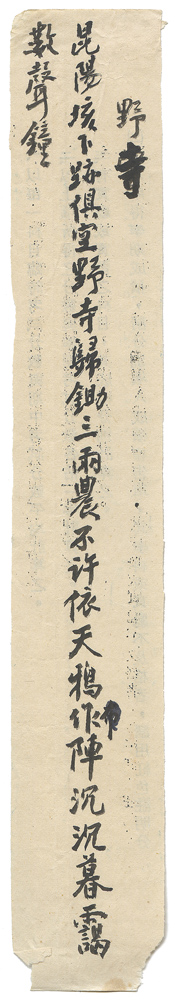 野寺
昆陽垓下跡俱空野寺歸鋤三兩農不許依天鴉作陣沉沉暮靄
數聲鐘